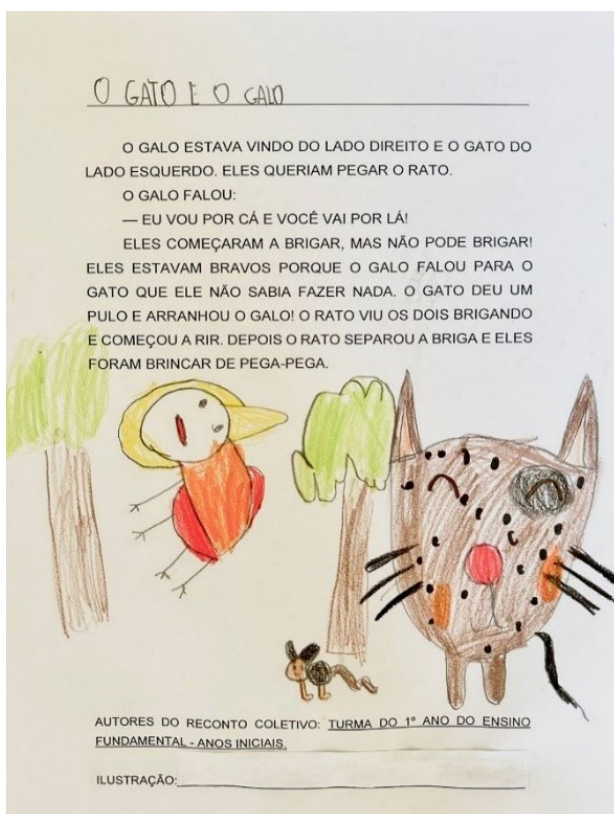 O GATO E O GALO
O GALO ESTAVA VINDO DO LADO DIREITO E O GATO DO
LADO ESQUERDO. ELES QUERIAM PEGAR O RATO.
O GALO FALOU:
— EU VOU POR CÁ E VOCÊ VAI POR LÁ!
ELES COMEÇARAM A BRIGAR, MAS NÃO PODE BRIGAR!
ELES ESTAVAM BRAVOS PORQUE O GALO FALOU PARA O
GATO QUE ELE NÃO SABIA FAZER NADA. O GATO DEU UM
PULO E ARRANHOU O GALO! O RATO VIU OS DOIS BRIGANDO
E COMEÇOU A RIR. DEPOIS O RATO SEPAROU A BRIGA E ELES
FORAM BRINCAR DE PEGA-PEGA.
AUTORES DO RECONTO COLETIVO: TURMA DO 1º ANO DO ENSINO
FUNDAMENTAL - ANOS INICIAIS.
ILUSTRAÇÃO: